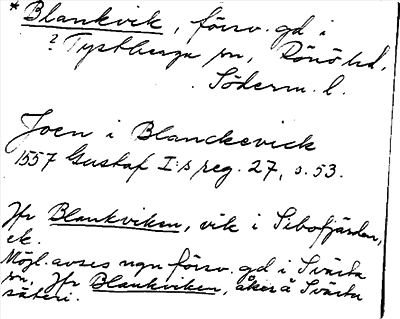 *Blankvik, försv. gd i
? Tystberga sn, Rönö hd,
Söderm. l.
Joen i Blanckevick
1557 Gustaf I:s reg. 27, s. 53.
Jfr Blankviken, vik i Sibofjärden,
ek.
Möjl. avses ngn försv. gd i Svärta
sn. Jfr Blankviken, åker å Svärta
säteri.